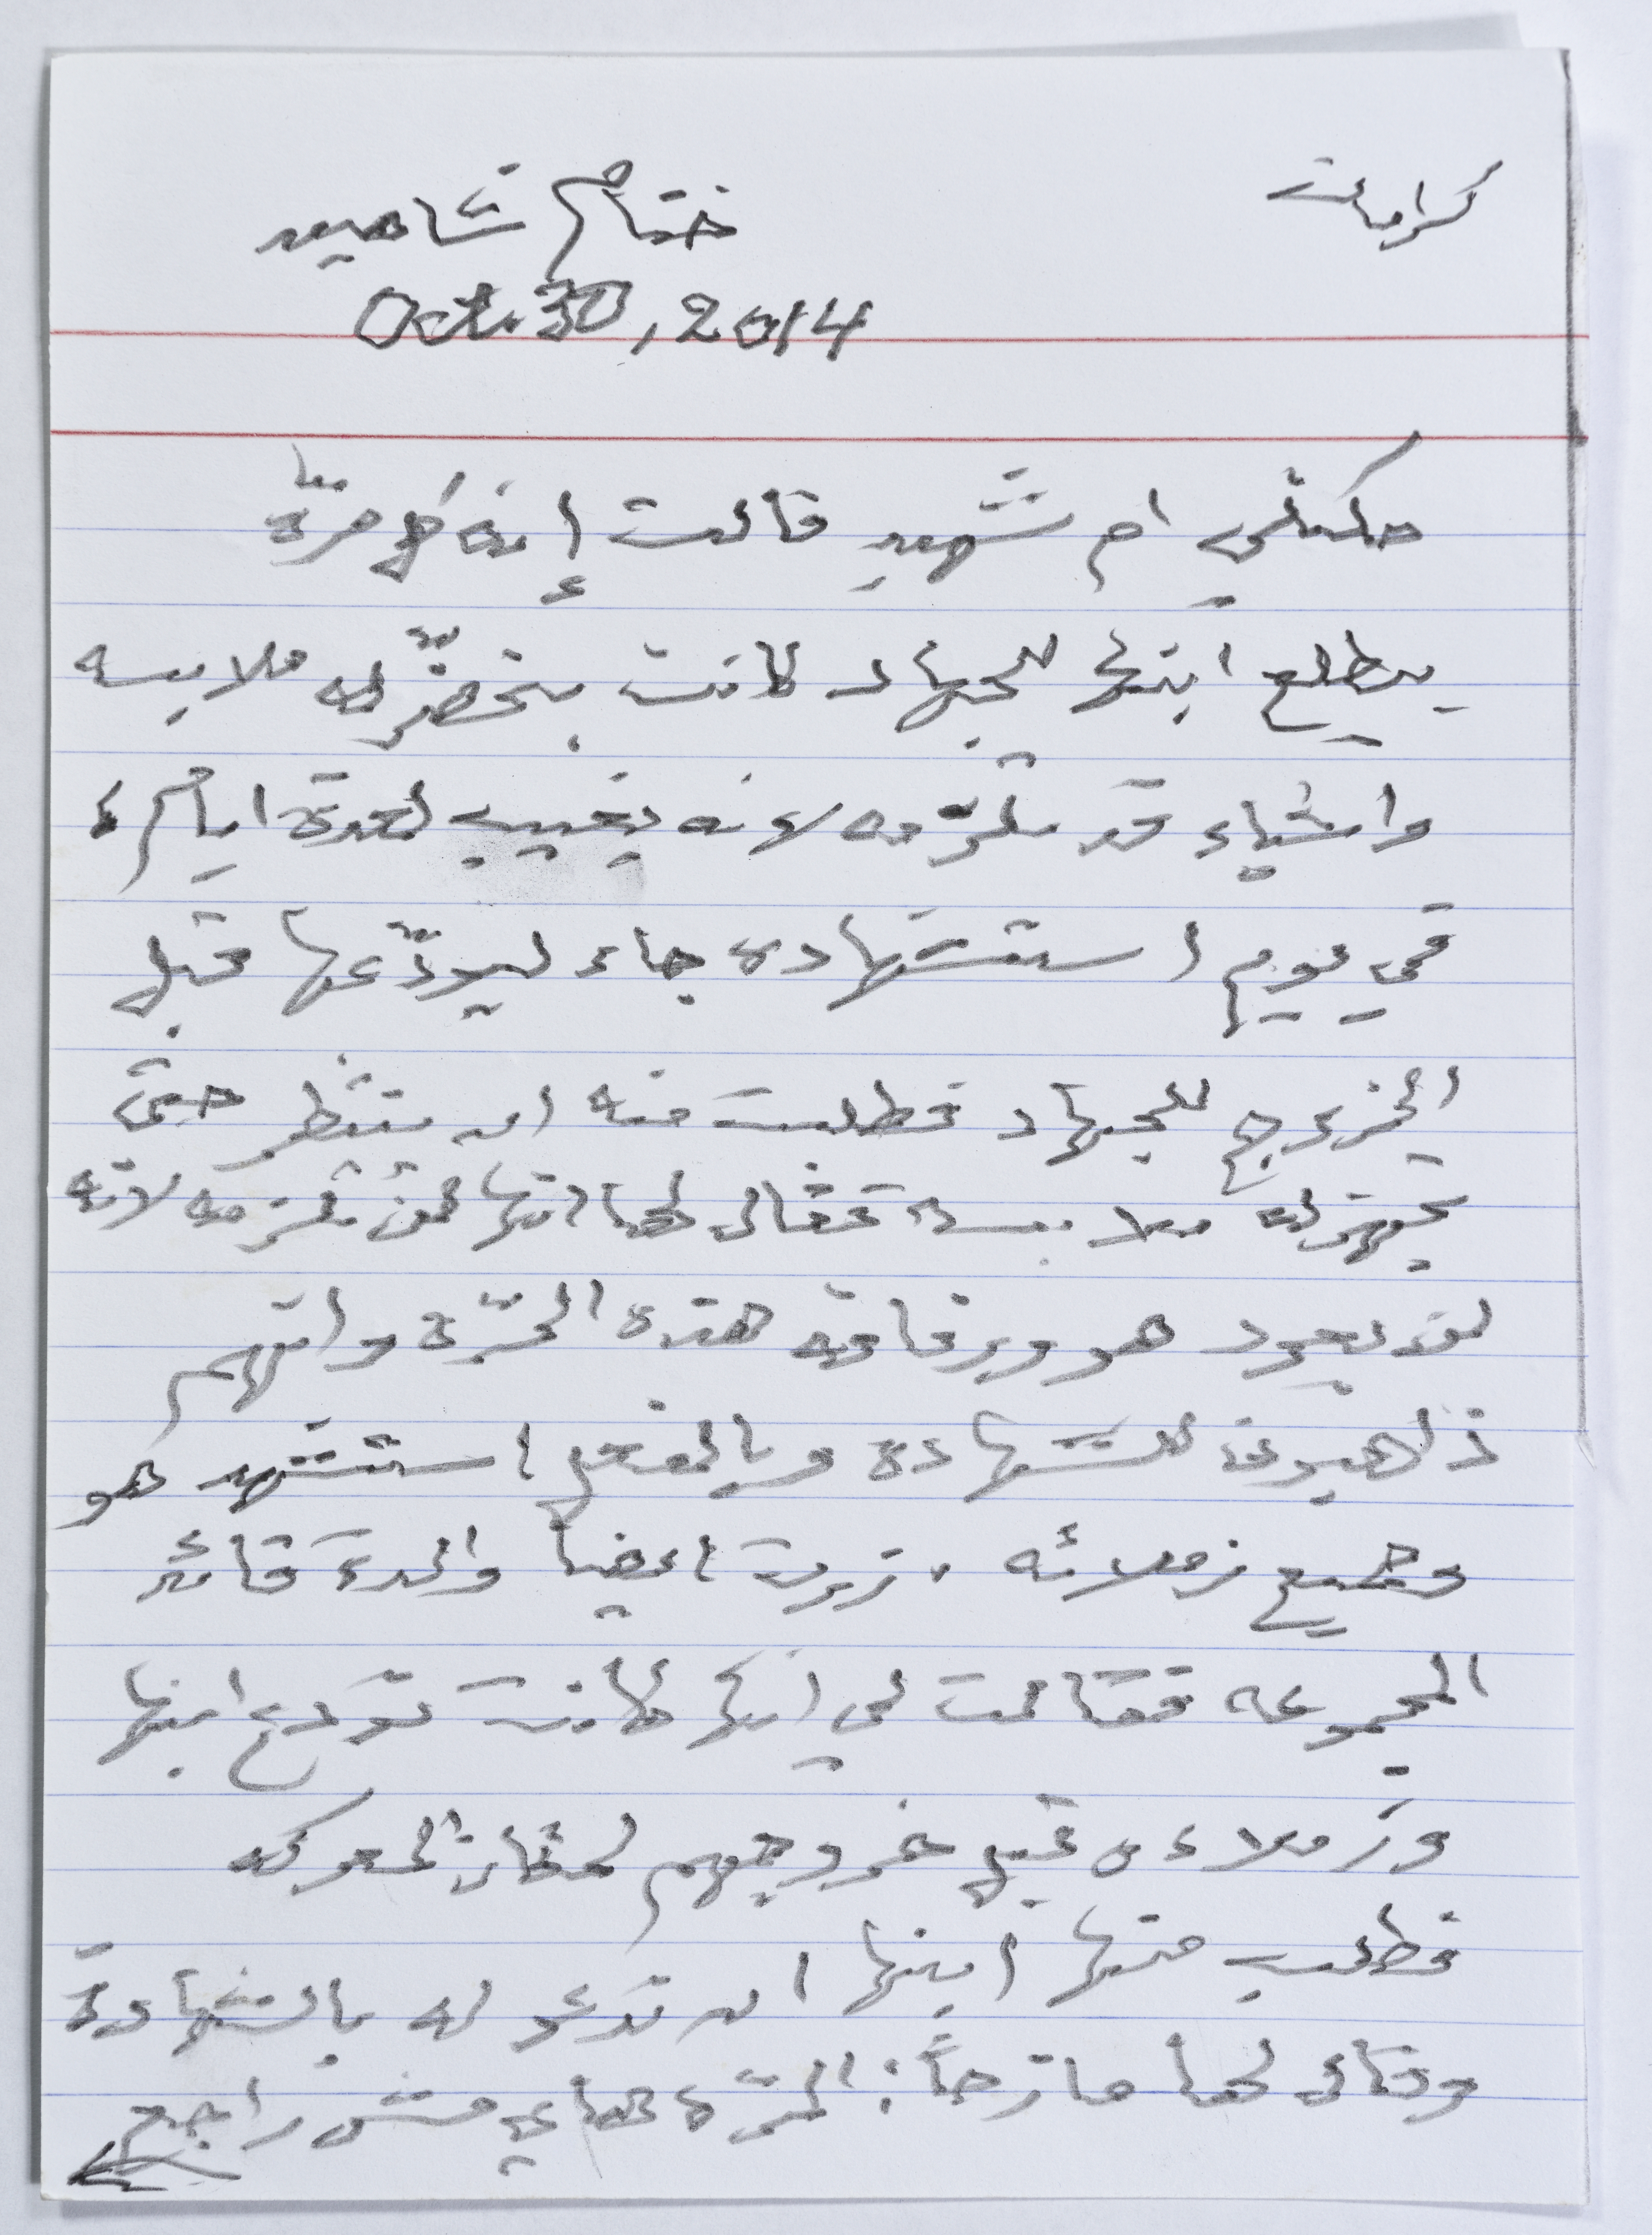 كرامات
ختام شاهين
Oct. 30, 2014
حكتلي ام شهيد قالت إنه كل مرّة
يطلع ابنها للجهاد كانت بتحضّر له ملابسه
واشياء قد تلزمه لانه يغيب لعدة ايام،
في يوم استشهاده جاء ليودّعها قبل
الخروج للجهاد فطلبت منه ان ينتظر حتى
تجهزله ملابسه فقال لها انها لن تلزمه لانه
لن يعود هو ورفاقه هذه المرّة وانهم
ذاهبون للشهادة وبالفعل استشهد هو
وجميع زملائه. زرت ايضا والدة قائد
المجموعه فقالت لي إنها كانت تودع ابنها
وزملاءه قبل خروجهم لمكان المعركه
فطلب منها ابنها ان تدعو له بالشهادة
وقال لها مازحاً: المرّة هاي مش راجع